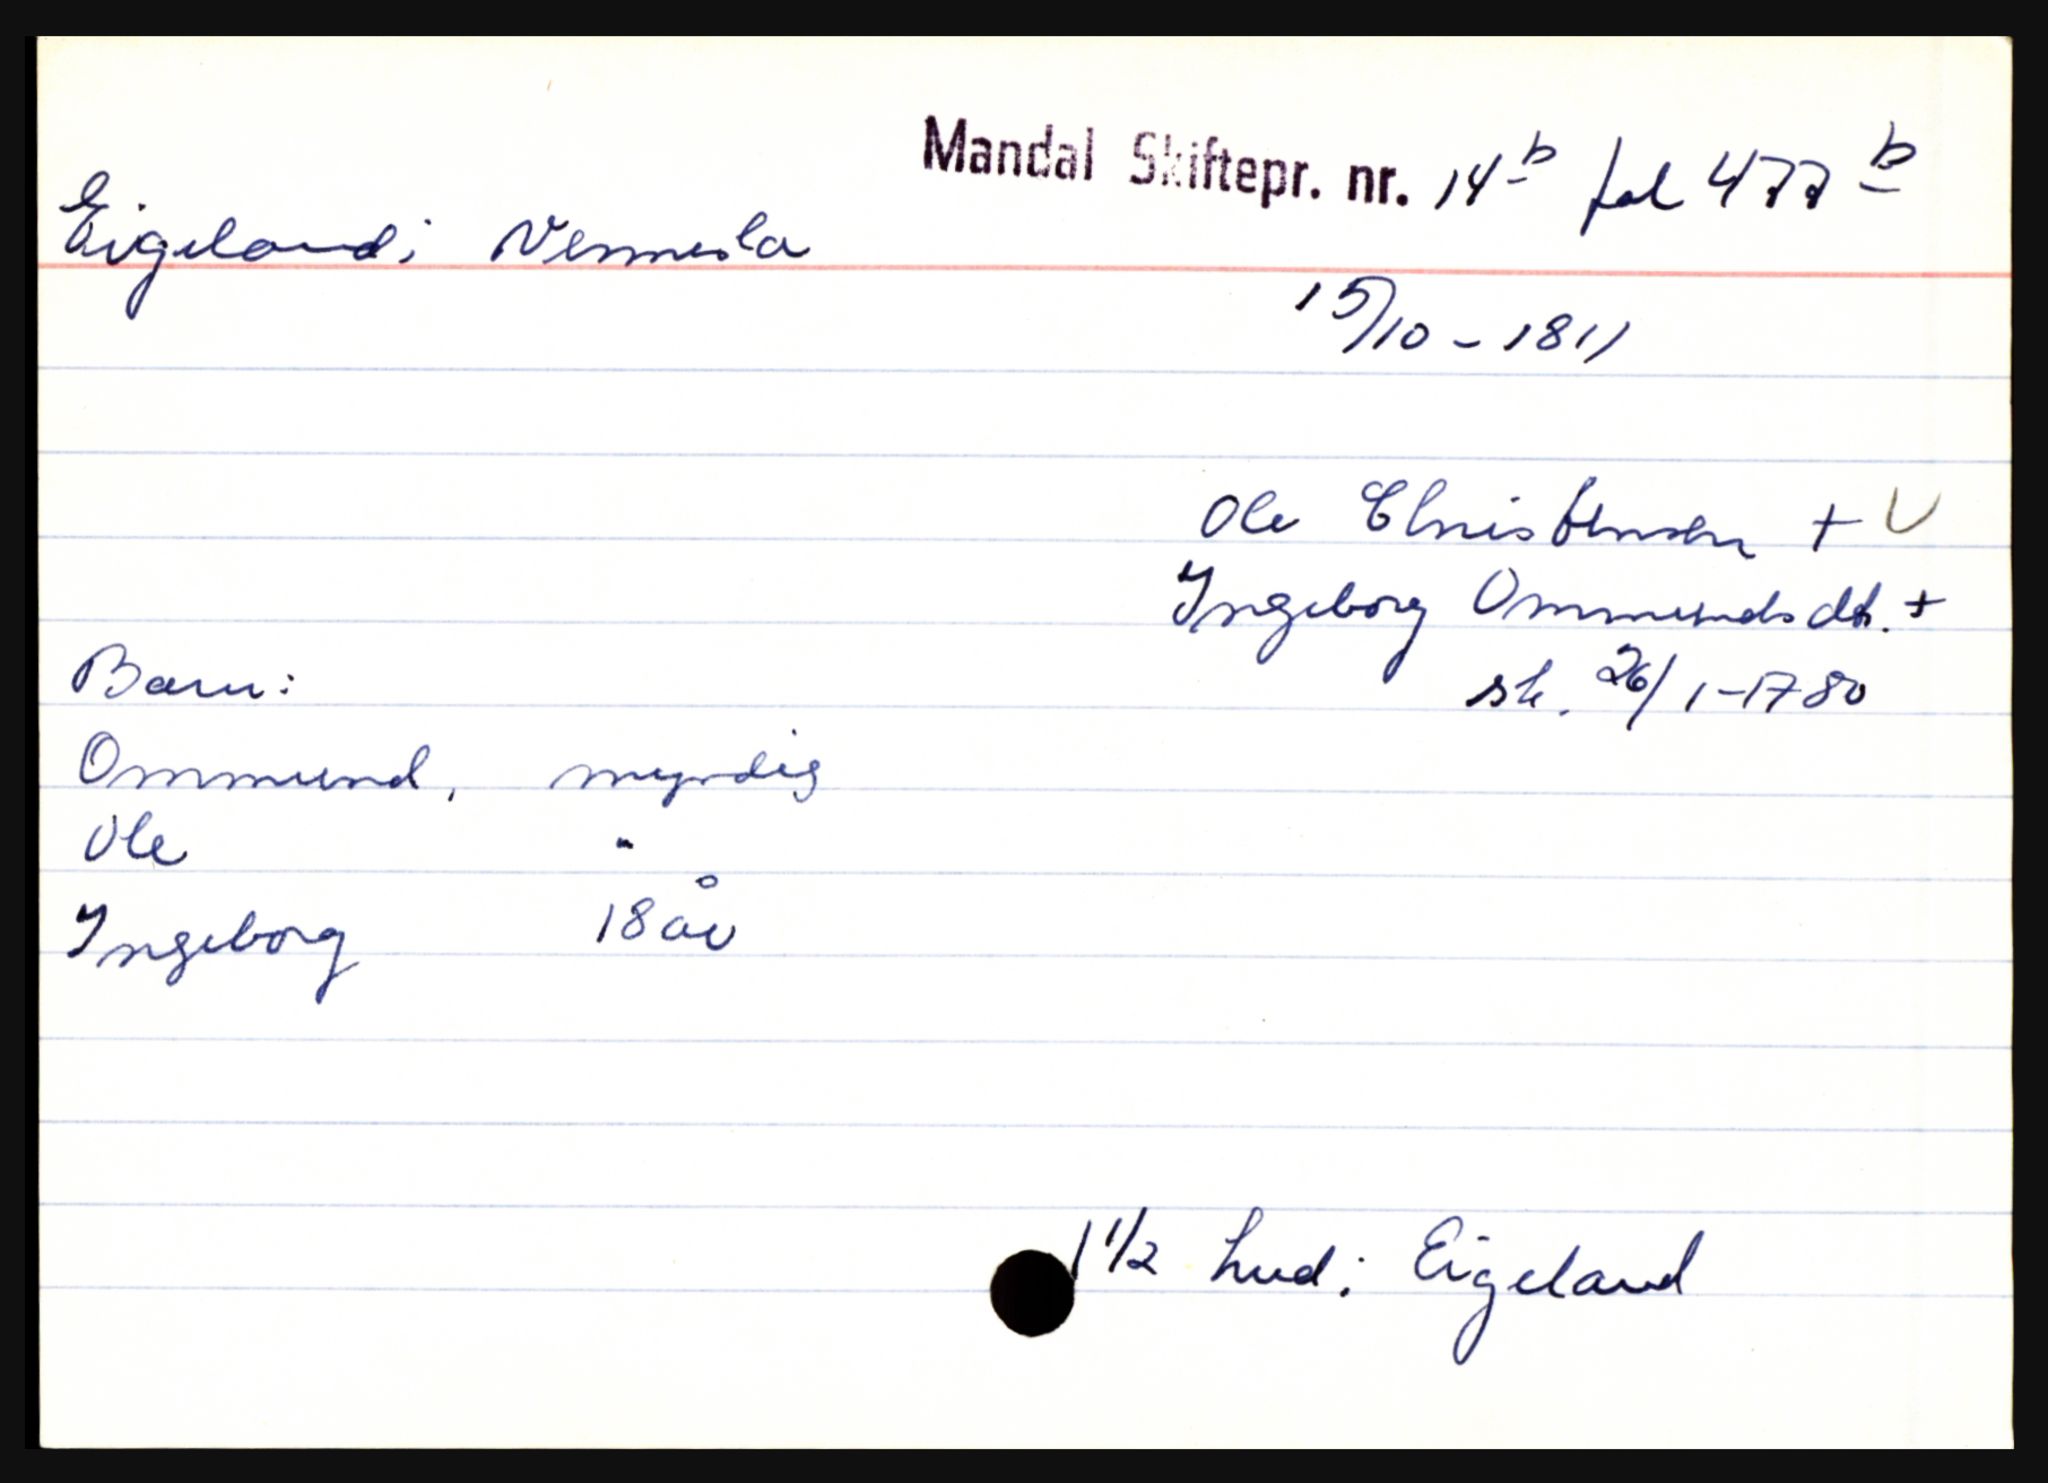 Mandal Skiftepr. nr. 14b fol 477b
Eigeland i Vennesla
15/10 - 1811
Ole Christensen + U
Ingeborg Ommundsdt. +
sk. 26/1-1780
Barn:
Ommund, myndig
Ole "
Ingeborg 18 år
1 1/2 hud i Eigeland